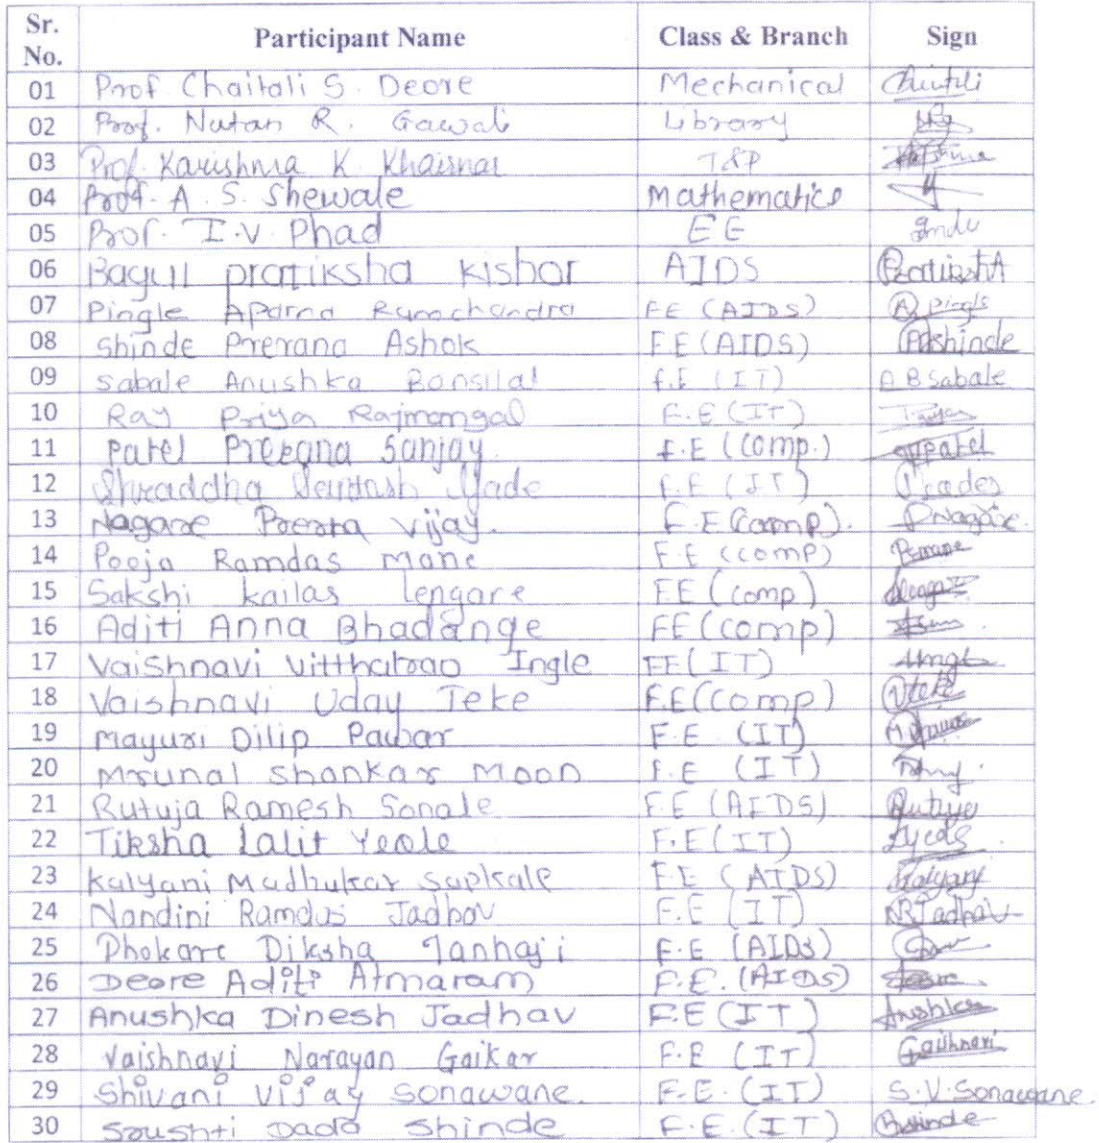 Sr. No. Participant Name Class & Branch Sign
01 Prof. Chaitali S. Deore Mechanical Chaitali
02 Prof. Nutan R. Gawali Library
03 Prof. Karishma K Khairnar T&P
04 Prof. A. S. Shewale Mathematics
05 Prof. I.V. Phad EE Indu
06 Bagull pratiksha kishor AIDS PratikshA
07 Pingle Aparna Ramchandra FE (AIDS) A Pingle
08 Shinde Prerana Ashok F.E (AIDS) PAshinde
09 Sabale Anushka Bansilal F.E (IT) A B Sabale
10 Ray Priya Rajmangal F.E (IT)
11 Patel Prerana Sanjay. F.E (Comp.) Patel
12 Shraddha Jade F.E (IT)
13 Nagare Prerna vijay. F.E (comp). PNagare.
14 Pooja Ramdas mane F.E (comp) Pmane
15 Sakshi kailas Lengare F.E (comp)
16 Aditi Anna Bhadange FE (comp)
17 Vaishnavi Vitthalrao Ingle FE (IT)
18 Vaishnavi Uday Teke F.E (comp) Vteke
19 Mayuri Dilip Pawar F.E (IT)
20 Mrunal Shankar Moon F.E (IT)
21 Rutuja Ramesh Sonale F.E (AIDS) Rutuja
22 Tiksha Lalit Yeole F.E (IT)
23 Kalyani Madhukar Sapkale F.E (AIDS) Kalyani
24 Nandini Ramdas Jadhav F.E (IT) NRJadhav
25 Dhokare Diksha Tanhaji F.E (AIDS)
26 Deore Aditi Atmaram F.E. (AIDS) Deore
27 Anushka Dinesh Jadhav F.E (IT) Anushka
28 Vaishnavi Narayan Gaikar F.E (IT)
29 Shivani Vijay Sonawane. F.E. (IT) S.V.Sonawane.
30 Srushti Dada Shinde F.E. (IT)